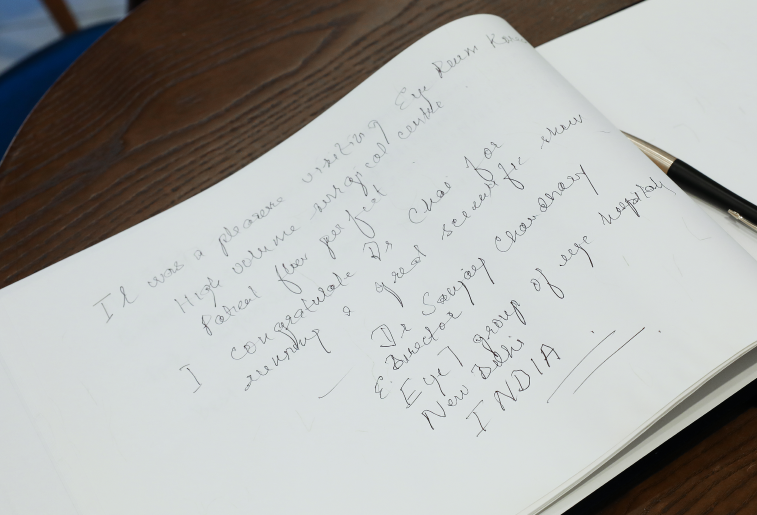 It was a pleasure visiting Eye Reum
High volume surgical centre.
Patient flow perfect.
I congratulate Dr Chai for
running a great scientific show
Dr Sanjay Chaudhary
Director
Eye7 group of eye hospitals
New Delhi
INDIA